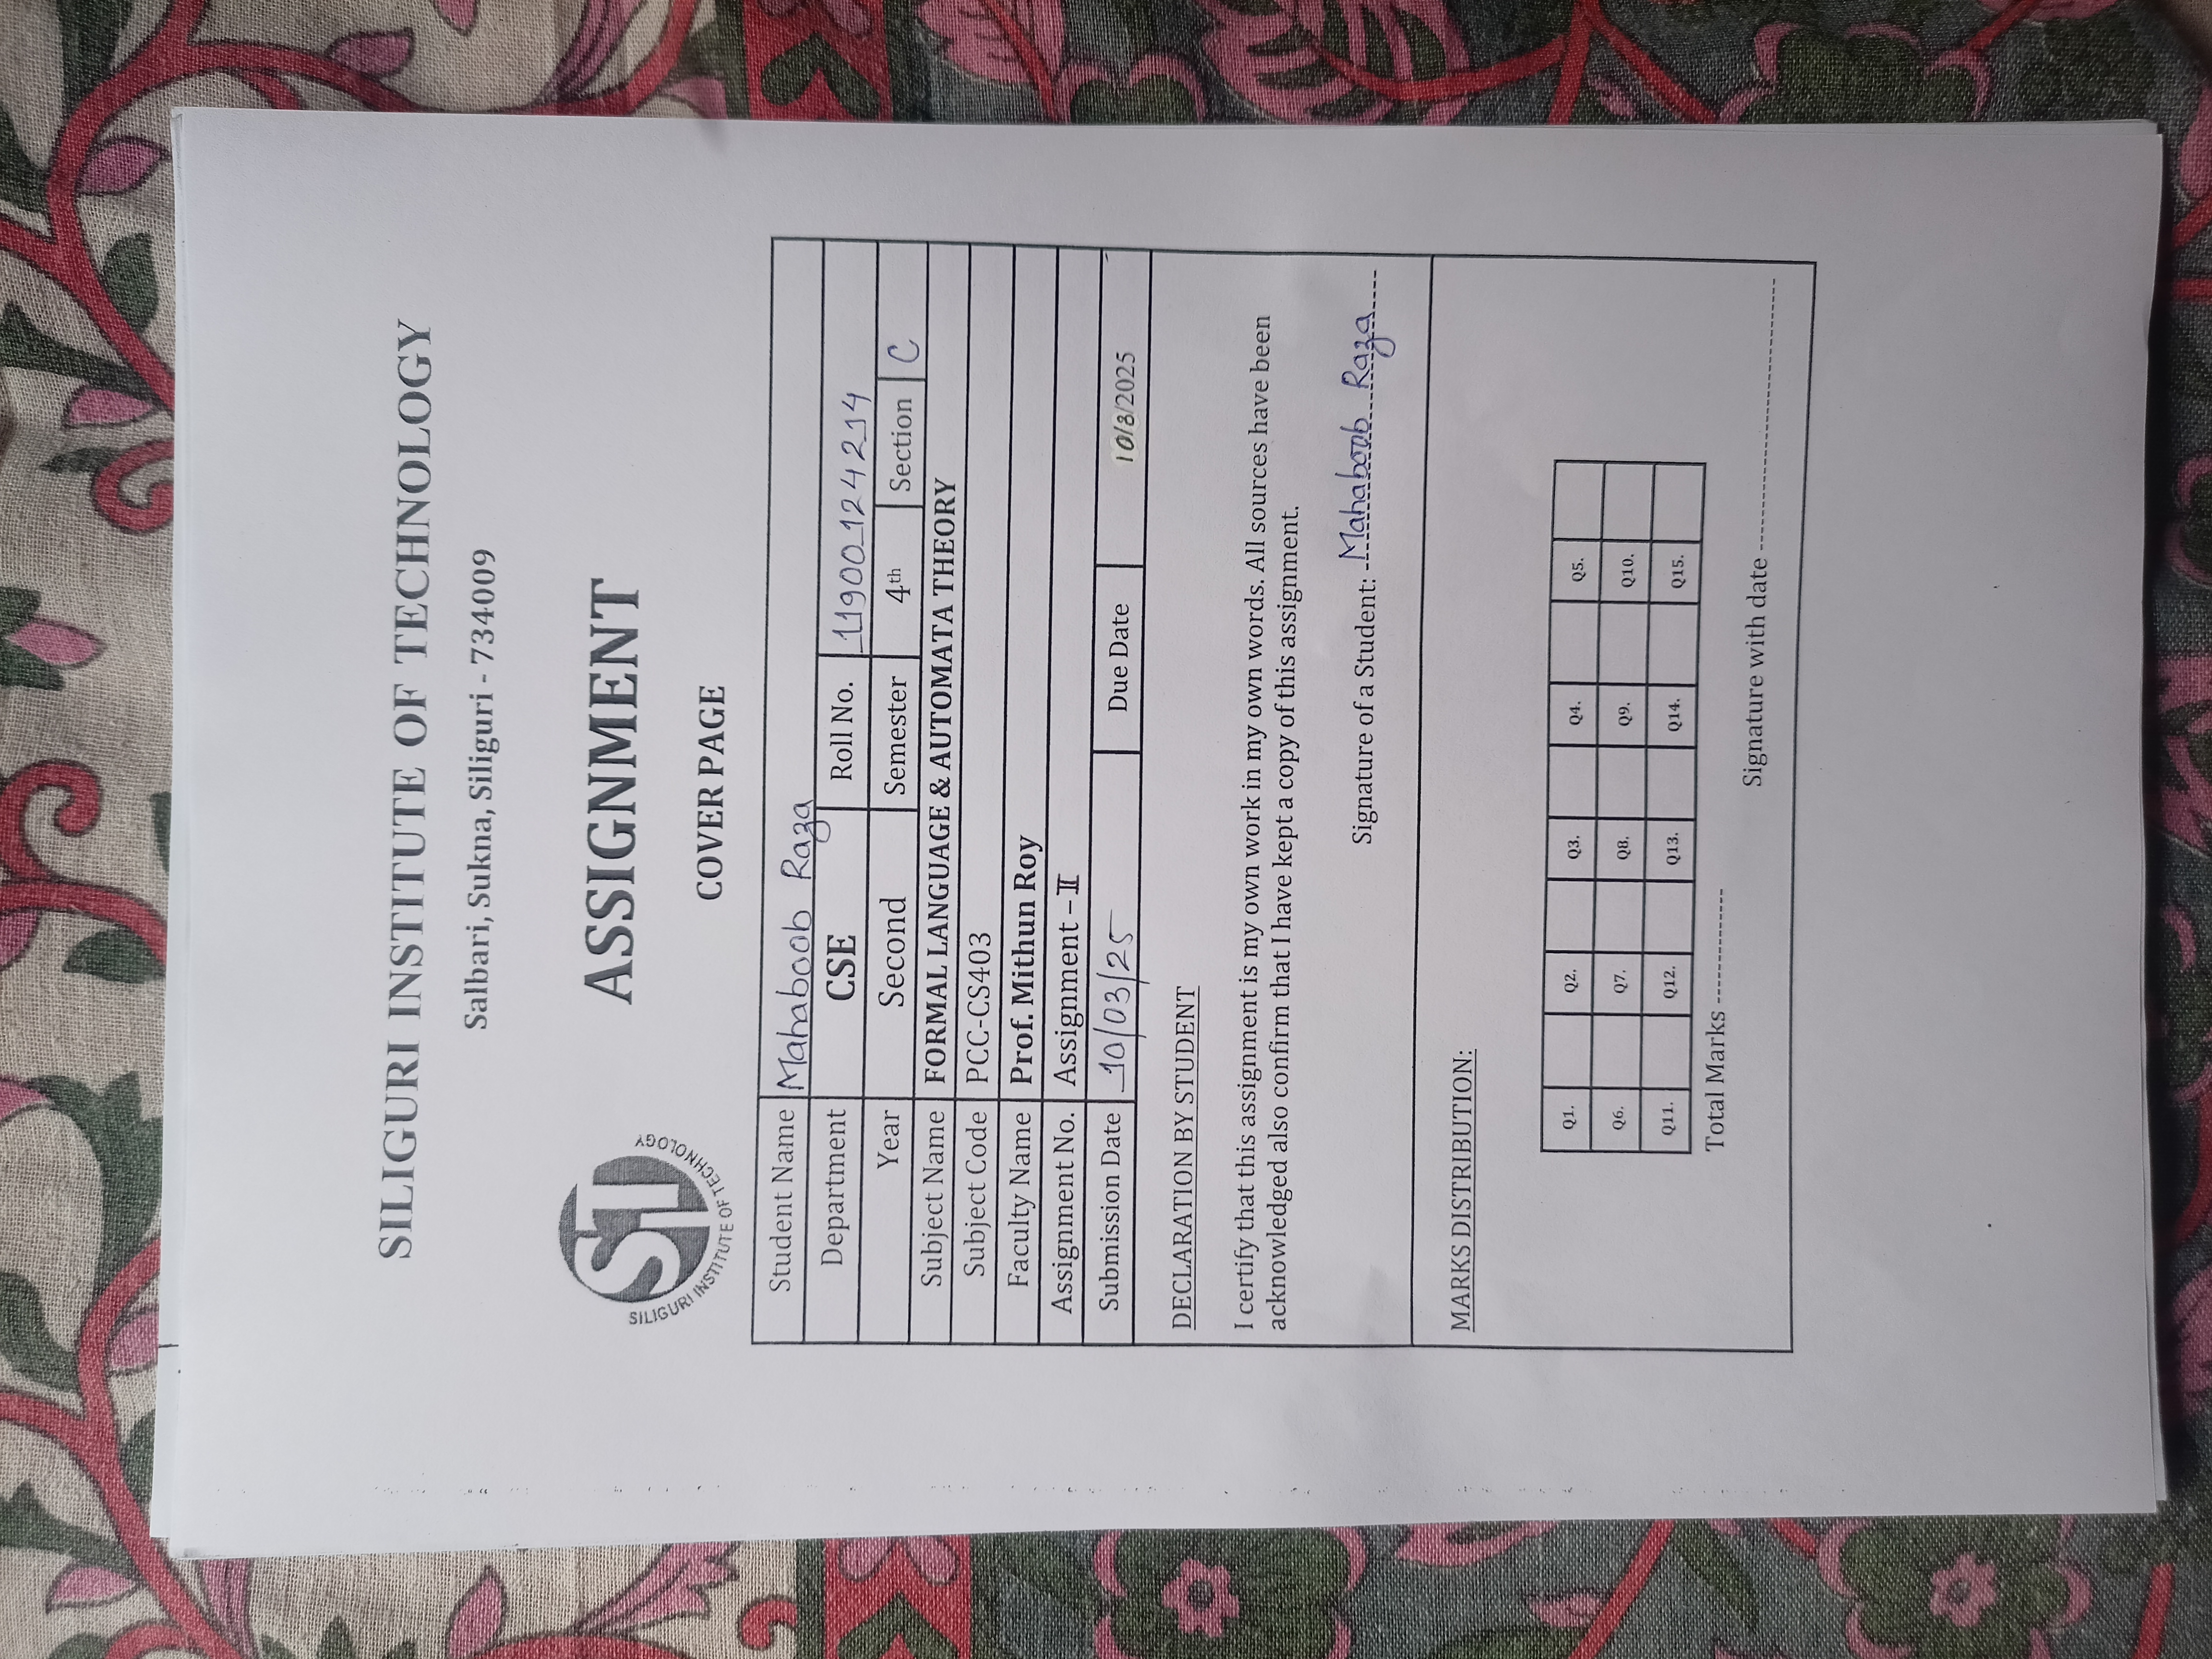 SILIGURI INSTITUTE OF TECHNOLOGY
Salbari, Sukna, Siliguri - 734009
STI
SILIGURI INSTITUTE OF TECHNOLOGY
ASSIGNMENT
COVER PAGE
Student Name Mahaboob Raza
Department CSE Roll No. 11900124214
Year Second Semester 4th Section C
Subject Name FORMAL LANGUAGE & AUTOMATA THEORY
Subject Code PCC-CS403
Faculty Name Prof. Mithun Roy
Assignment No. Assignment – II
Submission Date 10/03/25 Due Date 10/3/2025
DECLARATION BY STUDENT
I certify that this assignment is my own work in my own words. All sources have been
acknowledged also confirm that I have kept a copy of this assignment.
Signature of a Student: Mahaboob Raza
MARKS DISTRIBUTION:
Q1. Q2. Q3. Q4. Q5.
Q6. Q7. Q8. Q9. Q10.
Q11. Q12. Q13. Q14. Q15.
Total Marks ------------
Signature with date ------------------------------